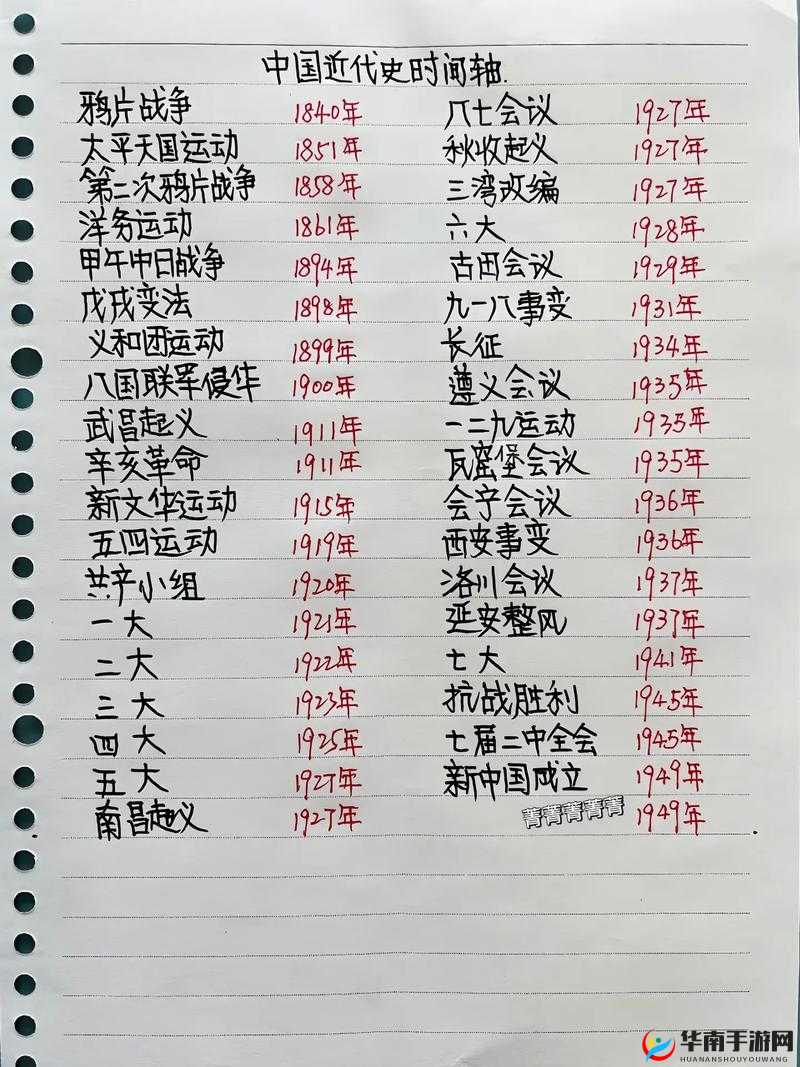 中国近代史时间轴.
鸦片战争 1840年
太平天国运动 1851年
第二次鸦片战争 1858年
洋务运动 1861年
甲午中日战争 1894年
戊戌变法 1898年
义和团运动 1899年
八国联军侵华 1900年
武昌起义 1911年
辛亥革命 1911年
新文华运动 1915年
五四运动 1919年
共产小组 1920年
一大 1921年
二大 1922年
三大 1923年
四大 1925年
五大 1927年
南昌起义 1927年
八七会议 1927年
秋收起义 1927年
三湾改编 1927年
六大 1928年
古田会议 1929年
九一八事变 1931年
长征 1934年
遵义会议 1935年
一二九运动 1935年
瓦窑堡会议 1935年
会宁会议 1936年
西安事变 1936年
洛川会议 1937年
延安整风 1937年
七大 1941年
抗战胜利 1945年
七届二中全会 1945年
新中国成立 1949年
菁菁菁菁菁 1949年
华南手游网
HUANANSHOUYOUWANG